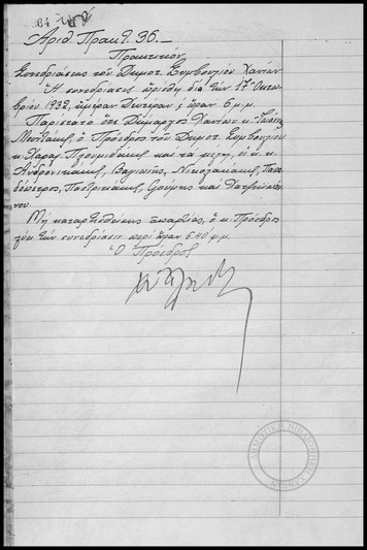 64
Αριθ. Πρακτ. 36.
Πρακτικόν
Συνεδριάσεως του Δημοτ. Συμβουλίου Χανίων
Η συνεδρίασις ωρίσθη δια την 17 Οκτω-
βρίου 1932, ημέραν Δευτέραν ξ ώραν 6 μ.μ.
Παρίστατο ότε Δήμαρχος Χανίων κ.
Μουτζάκης, ο Πρόεδρος του Δημοτ. Συμβουλίου
κ. Χαραλ. Πλουμιδάκης και τα μέλη, οι κ.κ.
Ανδρουτσάκης, Βαμιαδής, Νικολακάκης, Παπ
Παστρικάκης, και
νου.
Μη καταρτισθείσης απαρτίας, ο κ. Πρόεδρος
λύει την συνεδρίασιν περί ώραν 6.40' μ.μ.
Ο Πρόεδρος
ΔΗΜΟΤΙΚΗ ΒΙΒΛΙΟΘΗΚΗ ΧΑΝΙΩΝ